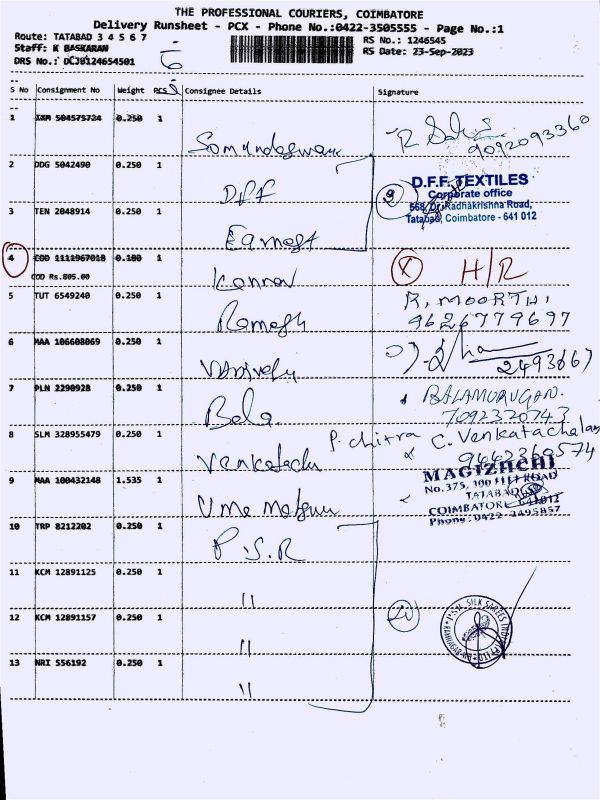 THE PROFESSIONAL COURIERS, COIMBATORE
Delivery Runsheet - PCX - Phone No.:0422-3505555 - Page No.:1
Route: TATABAD 3 4 5 6 7
RS No.: 1246545
Staff: K BASKARAN
RS Date: 23-Sep-2023
DRS No.: DCJ0124654501
S No Consignment No Weight PCS Consignee Details Signature
1 504575724 0.250 1
9092093360
2 DDG 5042490 0.250 1 DFF
D.F.F. TEXTILES
Corporate office
568, Dr. Radhakrishna Road,
Tatabad, Coimbatore - 641 012
9
3 TEN 2048914 0.250 1
4 COD 1111967018 0.100 1 Kannan X H/R
COD Rs.805.00
5 TUT 6549240 0.250 1 Ramesh R. MOORTHI.
9626779697
6 MAA 106608069 0.250 1
2493667
7 PLN 2290928 0.250 1 Bala BALAMURUGAN.
7092320743
8 SLM 328955479 0.250 1 Venkatachu P. chitra C. Venkatachalam
9442360574
9 MAA 100432148 1.535 1 Uma
MAGIZHCHI
No. 375, 100 FEET ROAD
TATABAD
COIMBATORE - 641012
Phone : 0422 - 2495857
10 TRP 8212202 0.250 1 P.S.R
11 KCM 12891125 0.250 1 "
12 KCM 12891157 0.250 1 "
13 NRI 556192 0.250 1 "